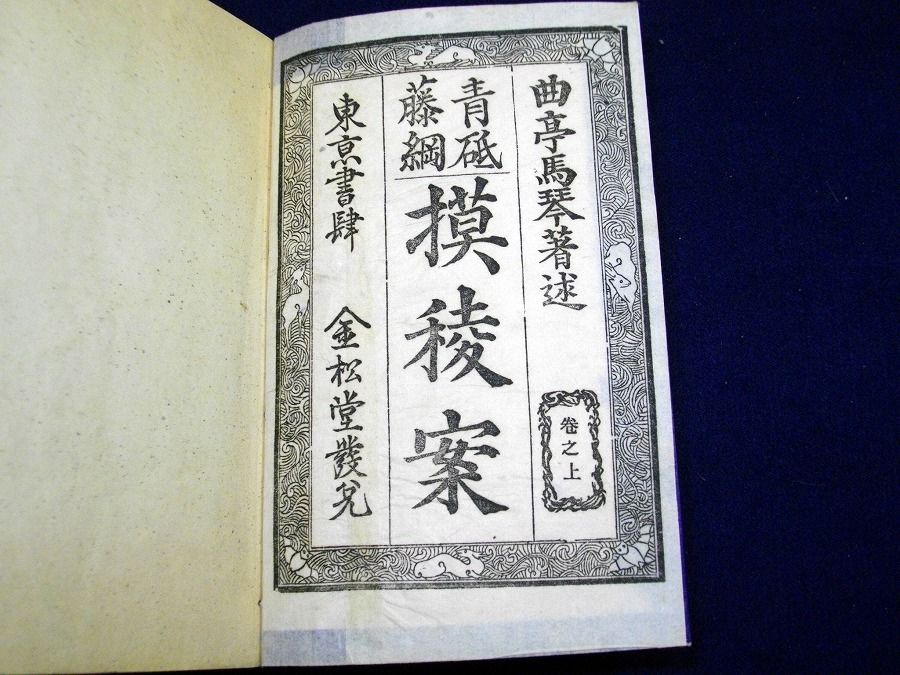 曲亭馬琴著述
巻之上
青砥
藤綱
摸稜案
東亰書肆 金松堂發兌